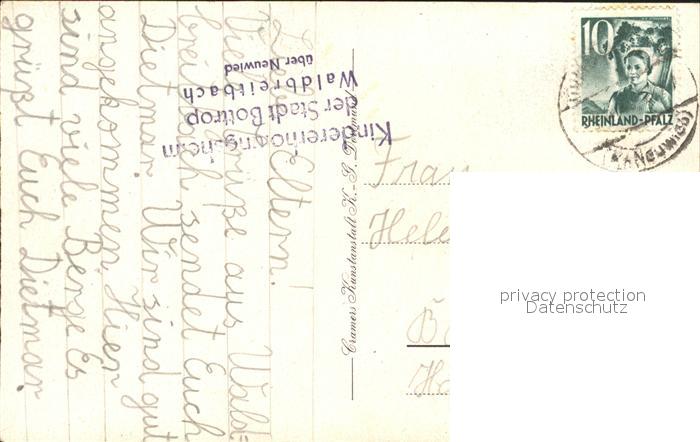 Liebe Eltern!
Viele Grüße aus Wald=
breitbach sendet Euch
Dietmar. Wir sind gut
angekommen. Hier
sind viele Berge. Es
grüßt Euch Dietmar
Kindererholungsheim
der Stadt Bottrop
Waldbreitbach
über Neuwied
Cramers Kunstanstalt K.-G. Dortmund
10
RHEINLAND-PFALZ
(Neuwied)
Frau
privacy protection
Datenschutz